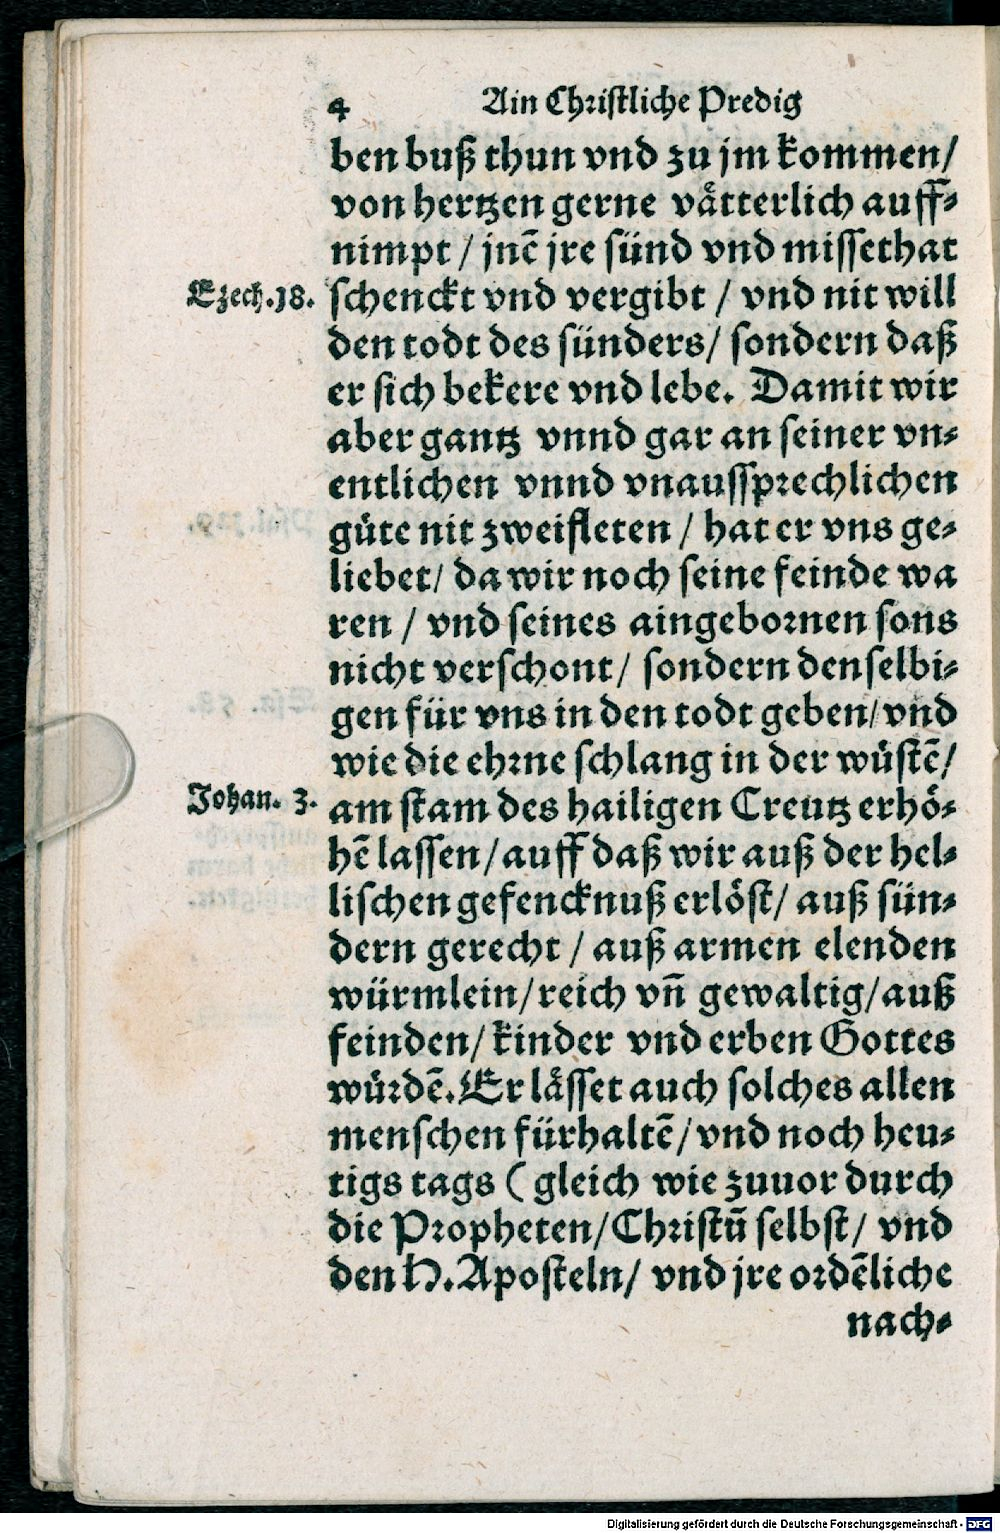 4 Ain Christliche Predig
ben buß thun vnd zu jm kommen/
von hertzen gerne vaͤtterlich auff-
nimpt / jnē jre sünd vnd missethat
Ezech.18. schenckt vnd vergibt / vnd nit will
den todt des sünders/ sondern daß
er sich bekere vnd lebe. Damit wir
aber gantz vnnd gar an seiner vn-
entlichen vnnd vnaussprechlichen
guͤte nit zweifleten / hat er vns ge-
liebet/ da wir noch seine feinde wa
ren / vnd seines aingebornen sons
nicht verschont/ sondern denselbi-
gen für vns in den todt geben/ vnd
wie die ehrne schlang in der wuͤstē/
Johan. 3. am stam des hailigen Creutz erhoͤ-
hē lassen/ auff daß wir auß der hel-
lischen gefencknuß erloͤst/ auß sün-
dern gerecht / auß armen elenden
würmlein/ reich vn̄ gewaltig/ auß
feinden/ kinder vnd erben Gottes
wuͤrdē. Er laͤsset auch solches allen
menschen fürhaltē/ vnd noch heu-
tigs tags ( gleich wie zuuor durch
die Propheten/ Christū selbst/ vnd
den H. Aposteln/ vnd jre ordēliche
nach-
Digitalisierung gefördert durch die Deutsche Forschungsgemeinschaft - DFG